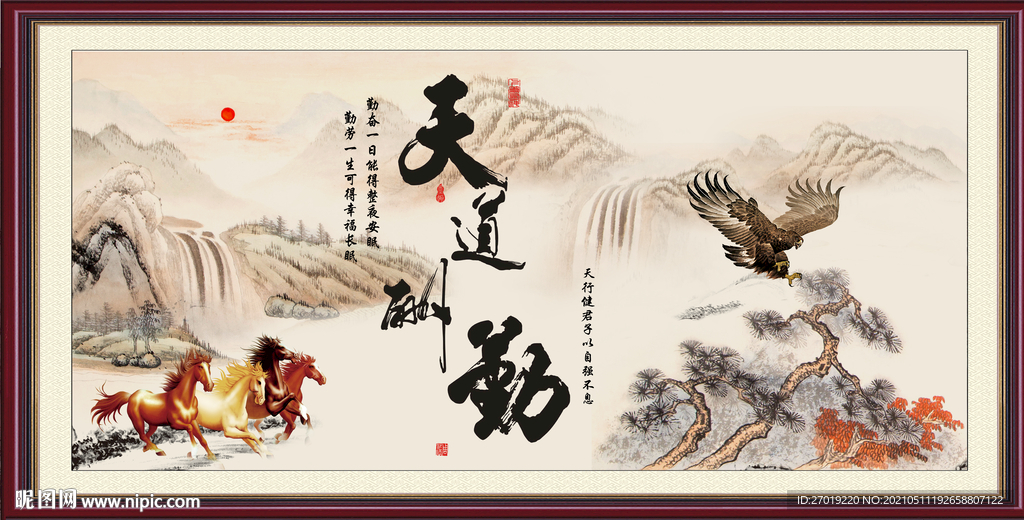 天道酬勤
勤奋一日能得整夜安眠
勤劳一生可得幸福长眠
天行健君子以自强不息
昵图网 www.nipic.com
ID:27019220 NO:20210511192658807122